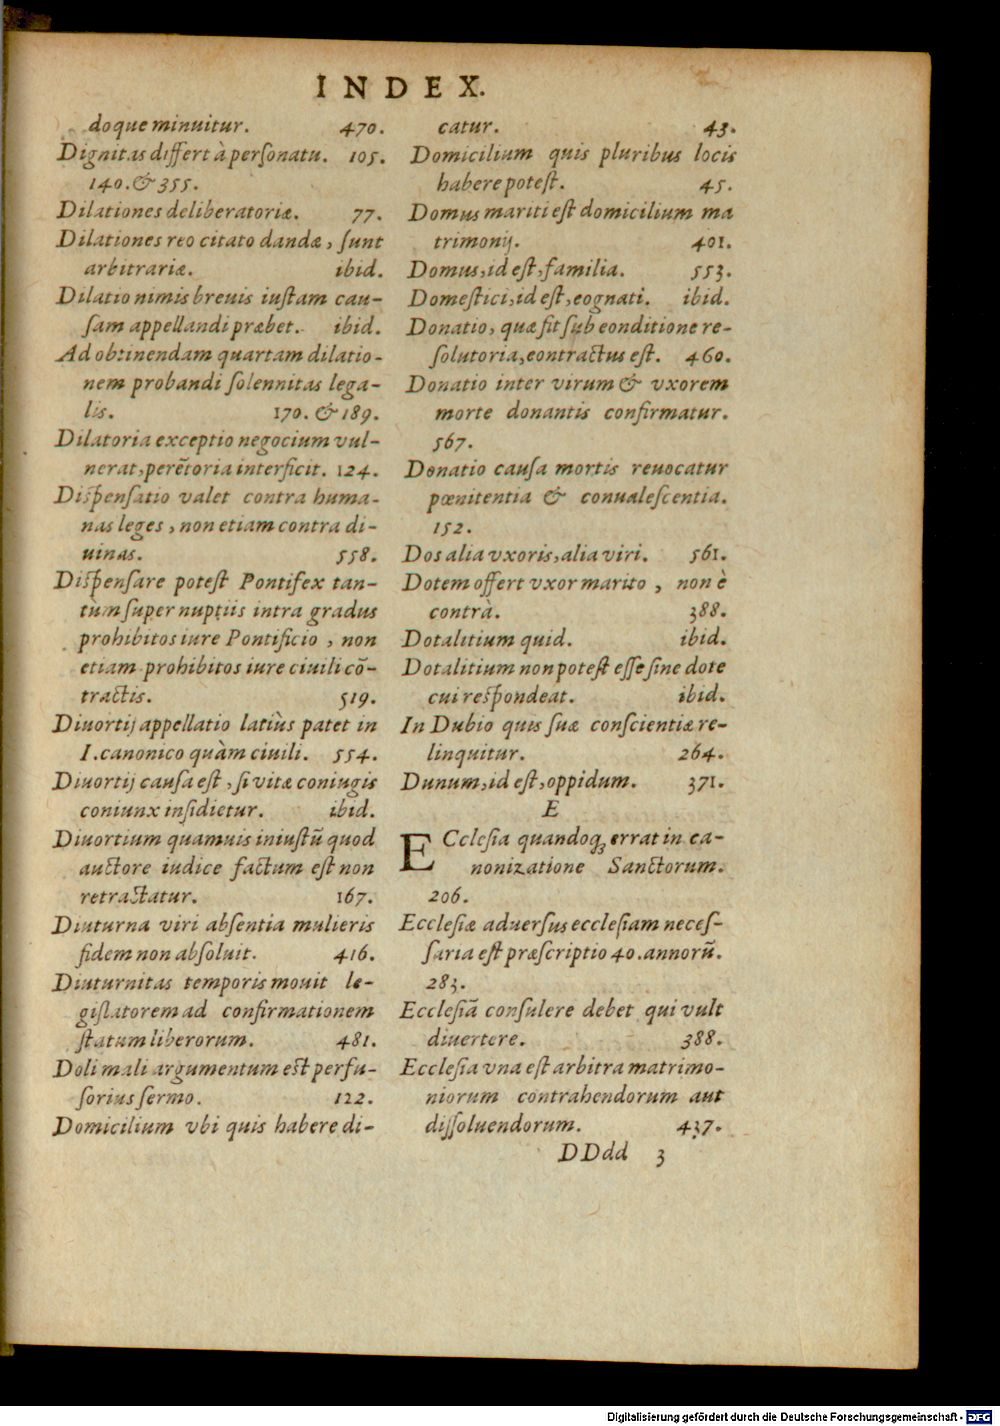 INDEX.
doque minuitur. 470.
Dignitas differt à perſonatu. 105.
140. & 355.
Dilationes deliberatoriæ. 77.
Dilationes reo citato dandæ, ſunt
arbitrariæ. ibid.
Dilatio nimis breuis iuſtam cau-
ſam appellandi præbet. ibid.
Ad obtinendam quartam dilatio-
nem probandi ſolennitas lega-
lis. 170. & 189.
Dilatoria exceptio negocium vul-
nerat, perētoria interficit. 124.
Diſpenſatio valet contra huma-
nas leges, non etiam contra di-
uinas. 558.
Diſpenſare poteſt Pontifex tan-
tùm ſuper nuptiis intra gradus
prohibitos iure Pontificio, non
etiam prohibitos iure ciuili cō-
tractis. 519.
Diuortij appellatio latiùs patet in
I. canonico quàm ciuili. 554.
Diuortij cauſa eſt, ſi vitæ coniugis
coniunx inſidietur. ibid.
Diuortium quamuis iniuſtū quod
auctore iudice factum eſt non
retractatur. 167.
Diuturna viri abſentia mulieris
fidem non abſoluit. 416.
Diuturnitas temporis mouit le-
giſlatorem ad confirmationem
ſtatum liberorum. 481.
Doli mali argumentum eſt perfu-
ſorius ſermo. 122.
Domicilium vbi quis habere di-
catur. 43.
Domicilium quis pluribus locis
habere poteſt. 45.
Domus mariti eſt domicilium ma
trimonij. 401.
Domus, id eſt, familia. 553.
Domeſtici, id eſt, eognati. ibid.
Donatio, quæ fit ſub eonditione re-
ſolutoria, eontractus eſt. 460.
Donatio inter virum & vxorem
morte donantis confirmatur.
567.
Donatio cauſa mortis reuocatur
pœnitentia & conualeſcentia.
152.
Dos alia vxoris, alia viri. 561.
Dotem offert vxor marito, non è
contrà. 388.
Dotalitium quid. ibid.
Dotalitium non poteſt eſſe ſine dote
cui reſpondeat. ibid.
In Dubio quis ſuæ conſcientiæ re-
linquitur. 264.
Dunum, id eſt, oppidum. 371.
E
ECcleſia quandoq; errat in ca-
nonizatione Sanctorum.
206.
Eccleſiæ aduerſus eccleſiam neceſ-
ſaria eſt præſcriptio 40. annorū.
283.
Eccleſiā conſulere debet qui vult
diuertere. 388.
Eccleſia vna eſt arbitra matrimo-
niorum contrahendorum aut
diſſoluendorum. 437.
DDdd 3
Digitalisierung gefördert durch die Deutsche Forschungsgemeinschaft - DFG